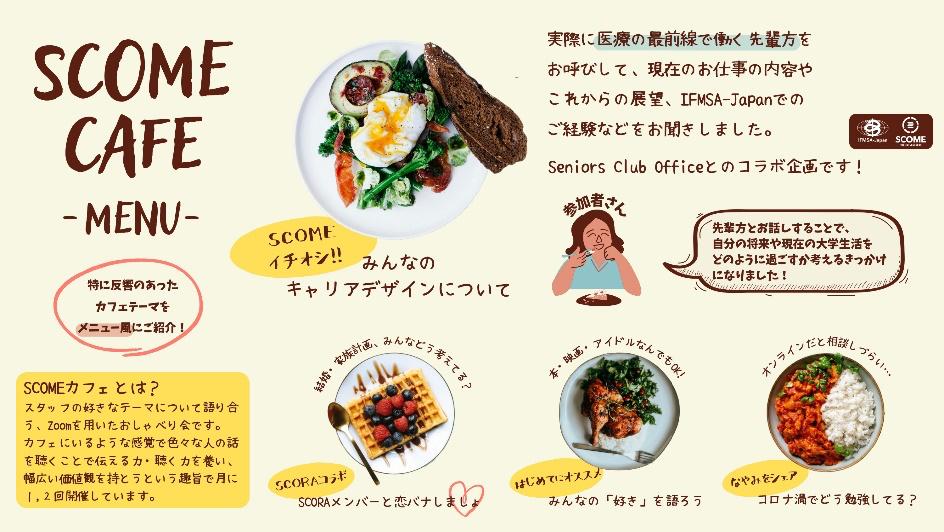 SCOME
CAFE
-MENU-
特に反響のあった
カフェテーマを
メニュー風にご紹介！
SCOMEカフェとは？
スタッフの好きなテーマについて語り合
う、Zoomを用いたおしゃべり会です。
カフェにいるような感覚で色々な人の話
を聴くことで伝える力・聴く力を養い、
幅広い価値観を持とうという趣旨で月に
1,2回開催しています。
SCOME
イチオシ!!
みんなの
キャリアデザインについて
実際に医療の最前線で働く先輩方を
お呼びして、現在のお仕事の内容や
これからの展望、IFMSA-Japanでの
ご経験などをお聞きしました。
Seniors Club Officeとのコラボ企画です！
IFMSA-Japan
SCOME
参加者さん
先輩方とお話しすることで、
自分の将来や現在の大学生活を
どのように過ごすか考えるきっかけ
になりました！
結婚・家族計画、みんなどう考えてる？
SCORAコラボ
SCORAメンバーと恋バナしましょ
本・映画・アイドルなんでもOK!
はじめてにオススメ
みんなの「好き」を語ろう
オンラインだと相談しづらい…
なやみをシェア
コロナ渦でどう勉強してる？